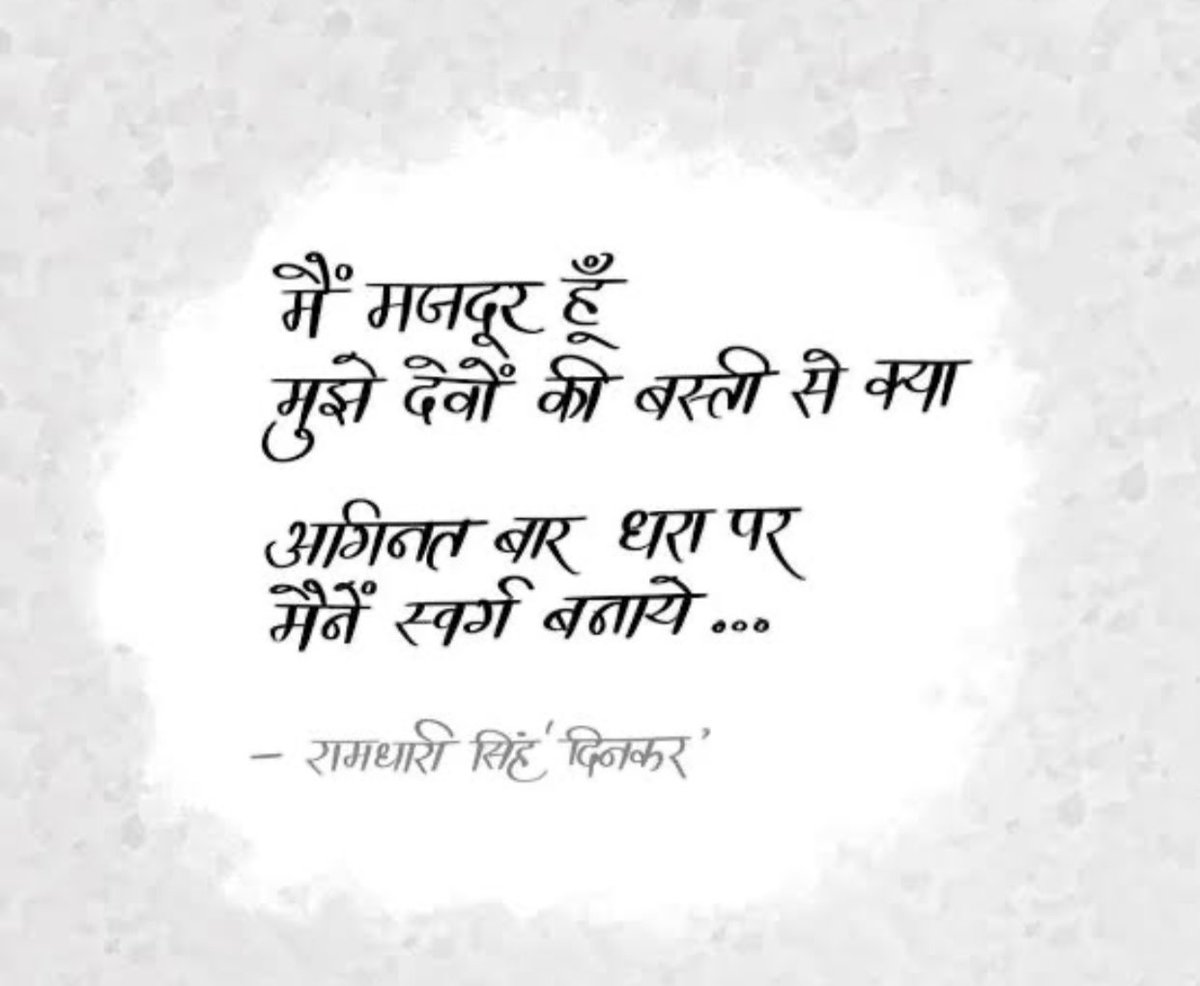 मैं मजदूर हूँ
मुझे देवों की बस्ती से क्या
अगिनत बार धरा पर
मैनें स्वर्ग बनाये...
– रामधारी सिंह 'दिनकर'